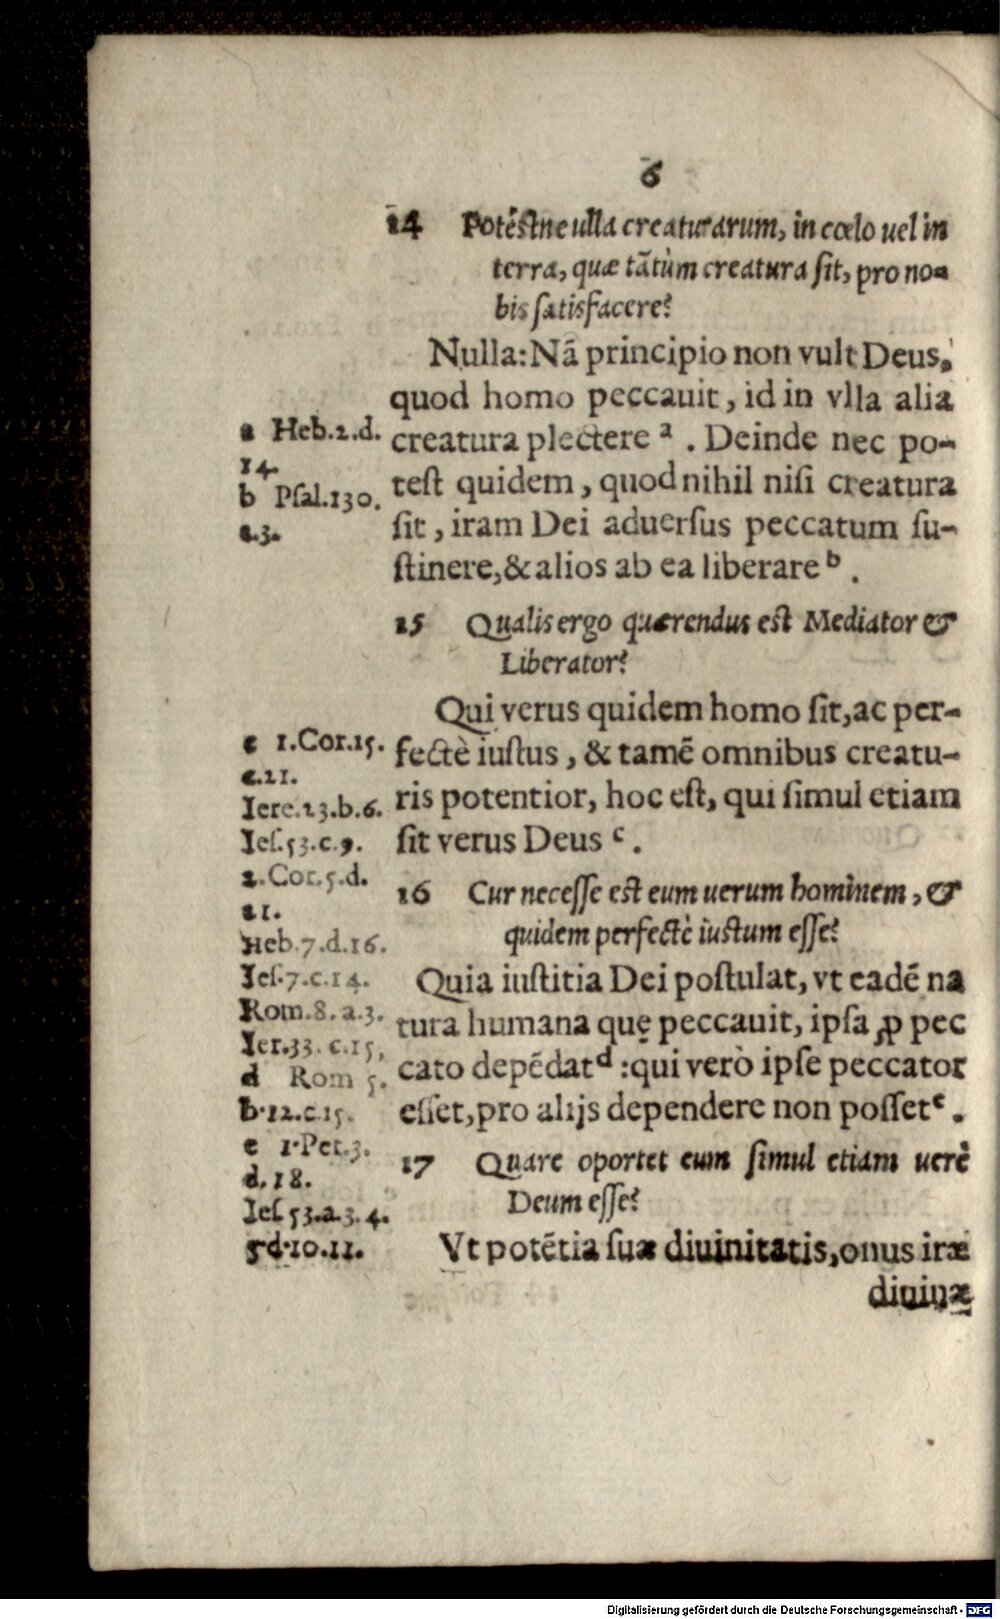 6
14 Potéstne ulla creaturarum, in cœlo uel in
terra, quæ tãtùm creatura ſit, pro no-
bis ſatisfacere?
Nulla: Nã principio non vult Deus,
quod homo peccauit, id in vlla alia
creatura plectere ᵃ . Deinde nec po-
teſt quidem, quod nihil niſi creatura
ſit, iram Dei aduerſus peccatum ſu-
ſtinere, & alios ab ea liberare ᵇ .
a Heb.2.d.
14.
b Pſal.130.
a.3.
15 Qualis ergo quærendus eſt Mediator &
Liberator?
Qui verus quidem homo ſit, ac per-
fectè iuſtus, & tamẽ omnibus creatu-
ris potentior, hoc eſt, qui ſimul etiam
ſit verus Deus ᶜ .
16 Cur neceſſe eſt eum uerum hominem, &
quidem perfectè iuſtum eſſe?
Quia iuſtitia Dei poſtulat, vt eadẽ na
tura humana quę peccauit, ipſa ꝓ pec
cato depẽdat ᵈ : qui verò ipſe peccator
eſſet, pro alijs dependere non poſſet ᵉ .
17 Quare oportet eum ſimul etiam uerè
Deum eſſe?
Vt potẽtia ſuæ diuinitatis, onus iræ
diuinæ
c 1.Cor.15.
c.21.
Iere.23.b.6.
Ieſ.53.c.9.
2.Cor.5.d.
21.
Heb.7.d.16.
Ieſ.7.c.14.
Rom.8.a.3.
Ier.33.c.15.
d Rom 5.
b.12.c.15.
e 1.Pet.3.
d.18.
Ieſ.53.a.3.4.
5.d.10.11.
Digitalisierung gefördert durch die Deutsche Forschungsgemeinschaft - DFG